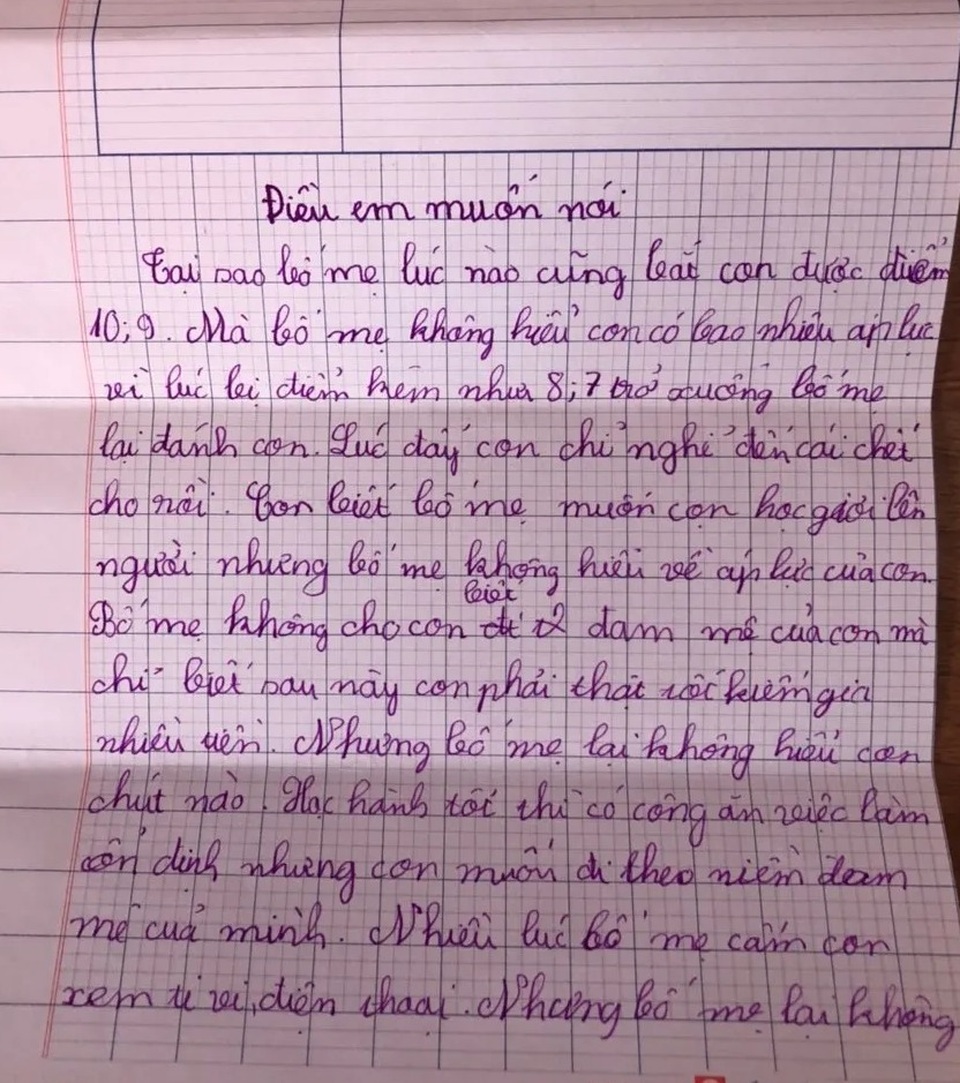 Điều em muốn nói
Tại sao bố mẹ lúc nào cũng bắt con được điểm
10; 9. Mà bố mẹ không hiểu con có bao nhiêu áp lực
vì lúc bị điểm kém như 8; 7 trở xuống bố mẹ
lại đánh con. Lúc đấy con chỉ nghĩ đến cái chết
cho rồi. Con biết bố mẹ muốn con học giỏi lên
người nhưng bố mẹ không hiểu về áp lực của con.
Bố mẹ không cho con biết đam mê của con mà
chỉ biết sau này con phải thật tốt kiếm
nhiều tiền. Nhưng bố mẹ lại không hiểu con
chút nào. Học hành tốt thì có công ăn việc làm
ổn định nhưng con muốn đi theo niềm đam
mê của mình. Nhiều lúc bố mẹ cấm con
xem ti vi, điện thoại. Nhưng bố mẹ lại không